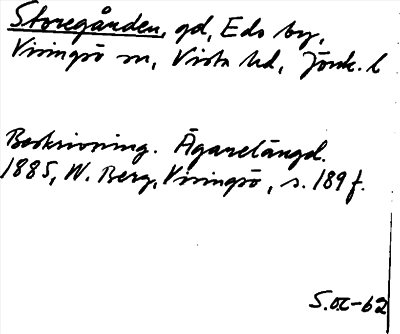 Storegården, gd, Eds by,
Visingsö sn, Vista hd, Jönk. l
Beskrivning. Ägarelängd.
1885, W. Berg, Visingsö, s. 189 f.